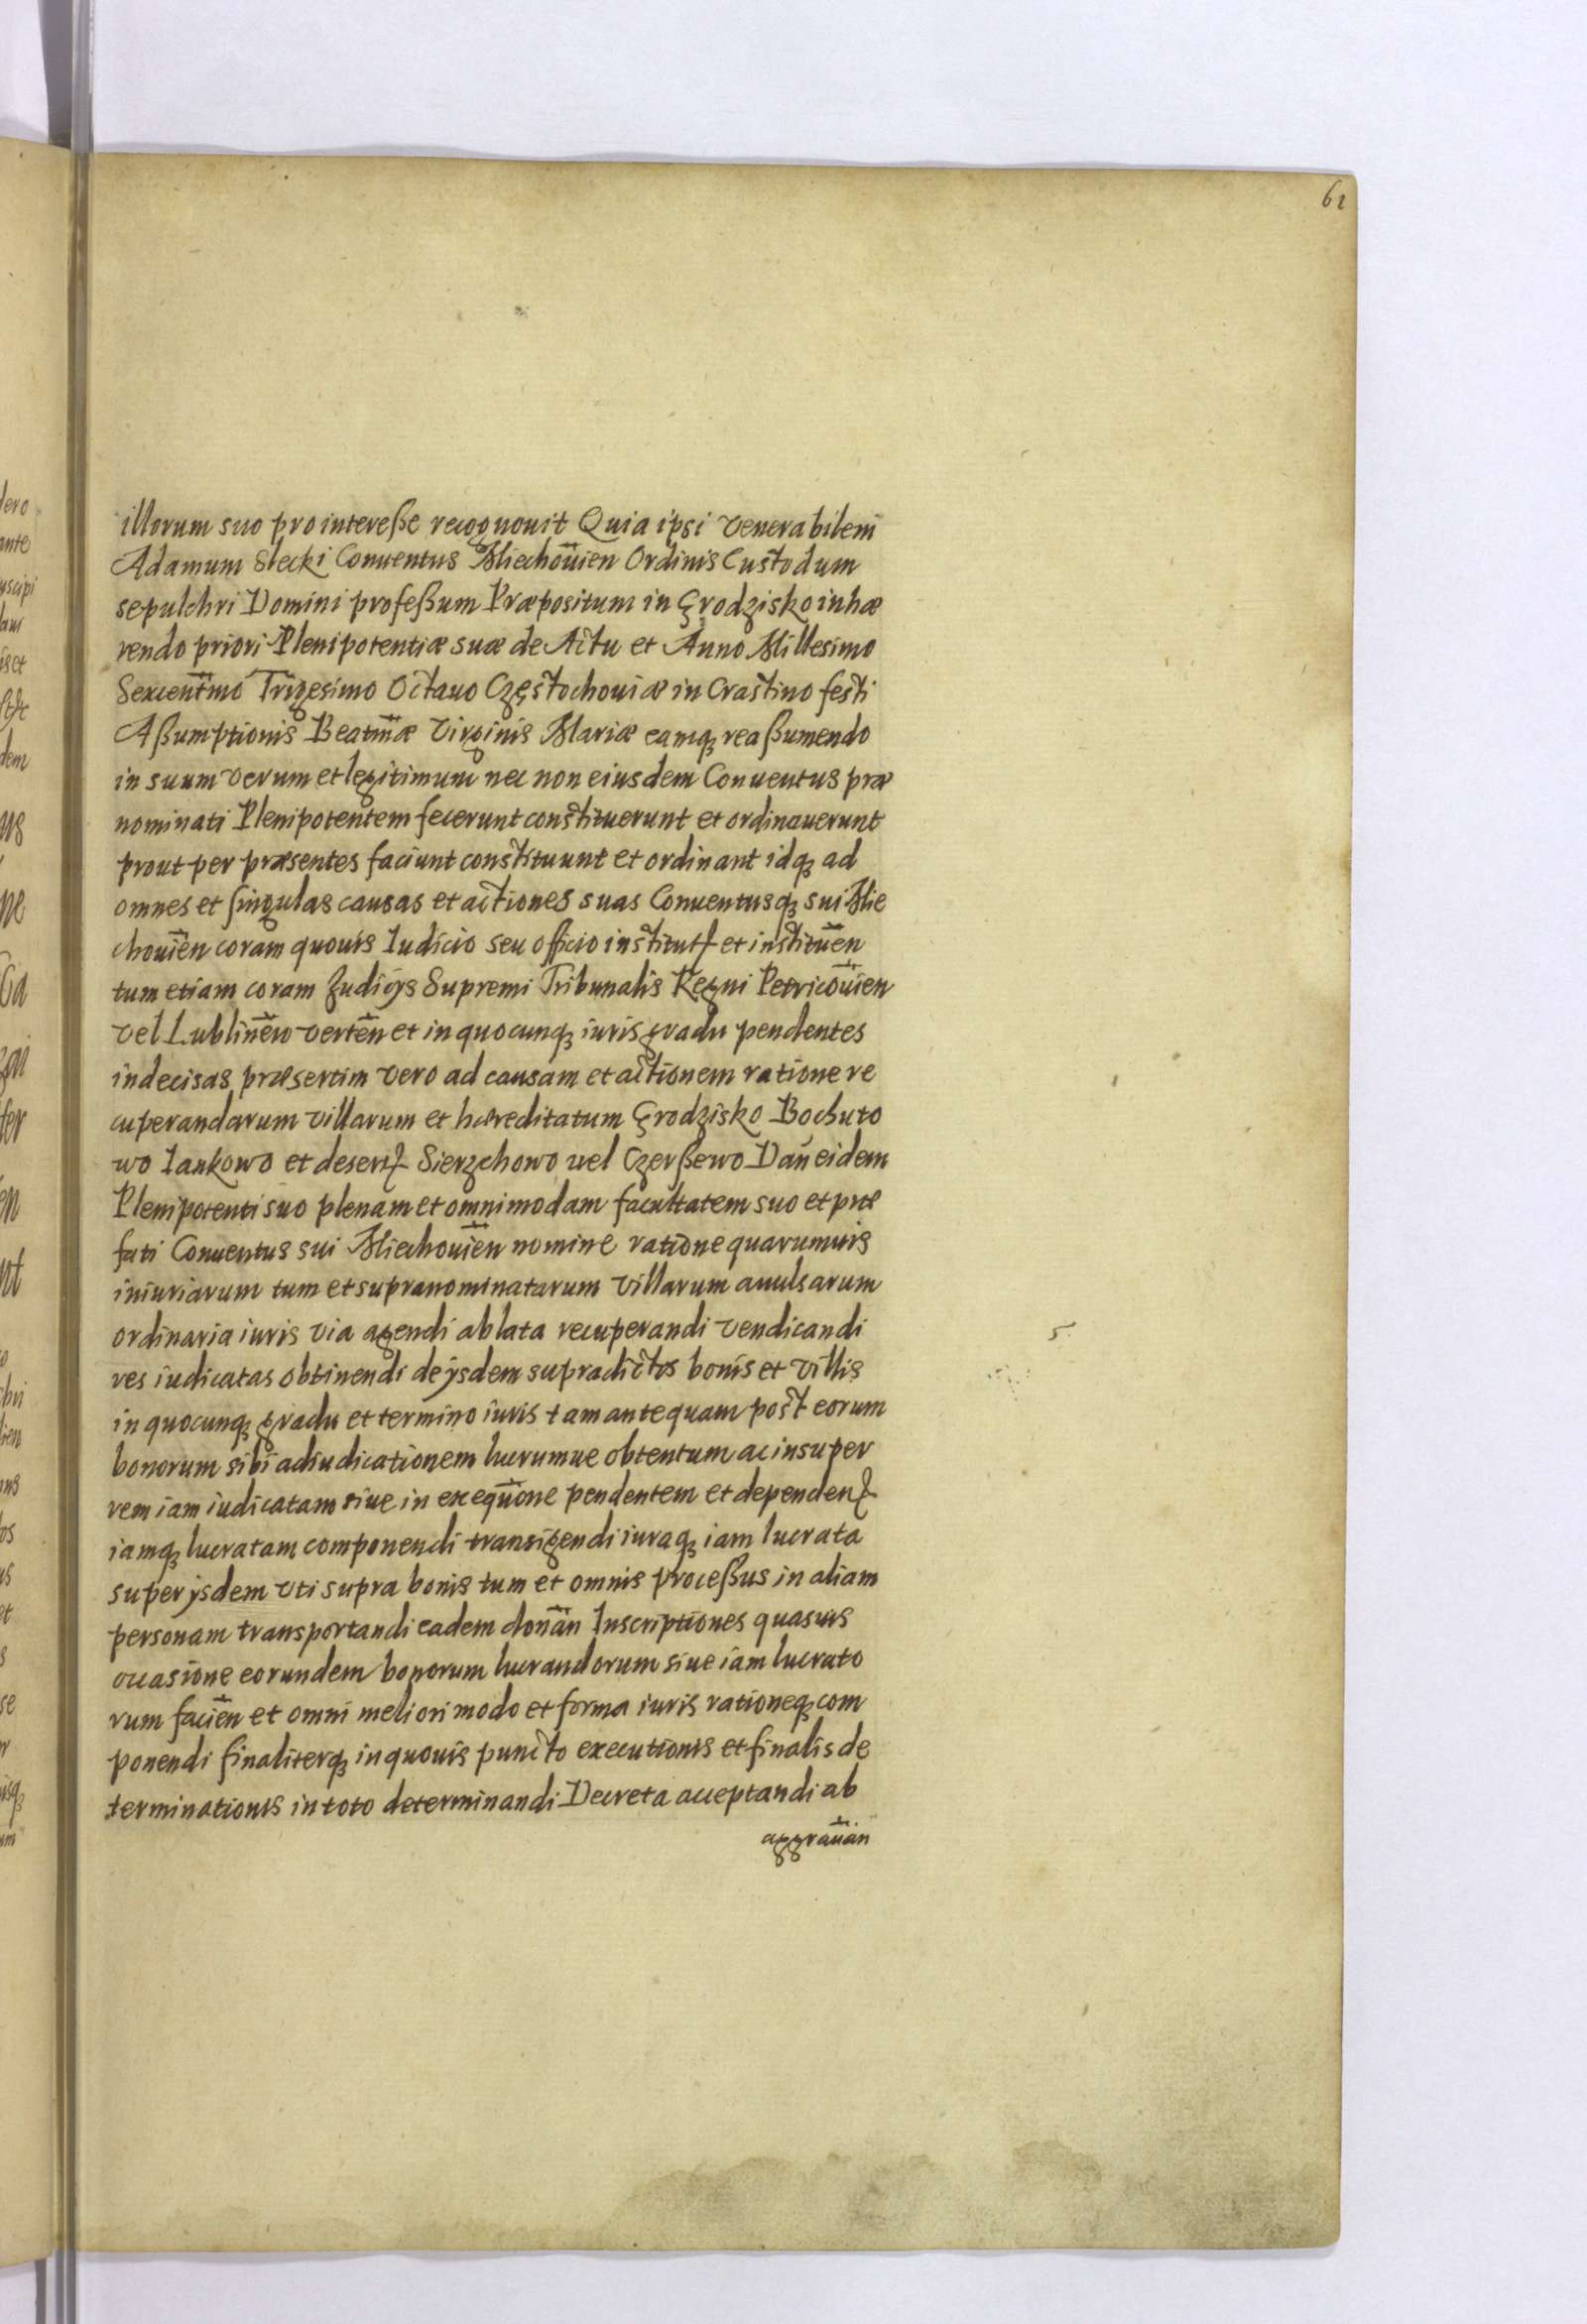 61
illorum suo pro intereße recognouit Quia ipsi venerabilem
Adamum Slecki Conuentus Miechouien̄ Ordinis Custodum
sepulchri Domini profeßum Præpositum in Grodzisko inhæ
rendo priori Plenipotentiæ suæ de Actu et Anno Millesimo
Sexcentm̄o Trigesimo Octauo Częstochouiæ in Crastino festi
Aßumptionis Beatm̄æ Virginis Mariæ eamq; reaßumendo
in suum verum et legitimum nec non eiusdem Conuentus præ
nominati Plenipotentem fecerunt constituerunt et ordinauerunt
prout per præsentes faciunt constituunt et ordinant idq; ad
omnes et singulas causas et actiones suas Conuentusq; sui Mie
chouien̄ coram quouis Iudicio seu officio institutꝭ et instituen̄
tum etiam coram Iudicijs Supremi Tribunalis Regni Petricouien̄
vel Lublinen̄ verten̄ et in quocunq; iuris gradu pendentes
indecisas præsertim vero ad causam et actionem ratione re
cuperandarum villarum et hæreditatum Grodzisko Bochuto
wo Iankowo et desertꝭ Sierzchowo uel Czerßewo Dan̄ eidem
Plenipotenti suo plenam et omnimodam facultatem suo et præ
fati Conuentus sui Miechouien̄ nomine ratione quarumuis
iniuriarum tum et supranominatarum villarum auulsarum
ordinaria iuris via agendi ablata recuperandi vendicandi
res iudicatas obtinendi de ijsdem supradictis bonis et villis
in quocunq; gradu et termino iuris tam antequam post eorum
bonorum sibi adiudicationem lucrumue obtentum ac insuper
rem iam iudicatam siue in exequūone pendentem et dependenꝭ
iamq; lucratam componendi transigendi iuraq; iam lucrata
super ijsdem vti supra bonis tum et omnis proceßus in aliam
personam transportandi eadem donan̄ Inscriptiones quasuis
occasione eorundem bonorum lucrandorum siue iam lucrato
rum facien̄ et omni meliori modo et forma iuris rationeq; com
ponendi finaliterq; in quouis puncto executionis et finalis de
terminationis in toto determinandi Decreta acceptandi ab
aggrauan̄